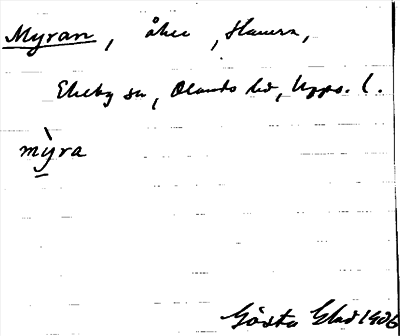 Myran, åker, Hauern,
Ekeby sn, Olands hd, Upps. l.
mỳra
Gösta 1906